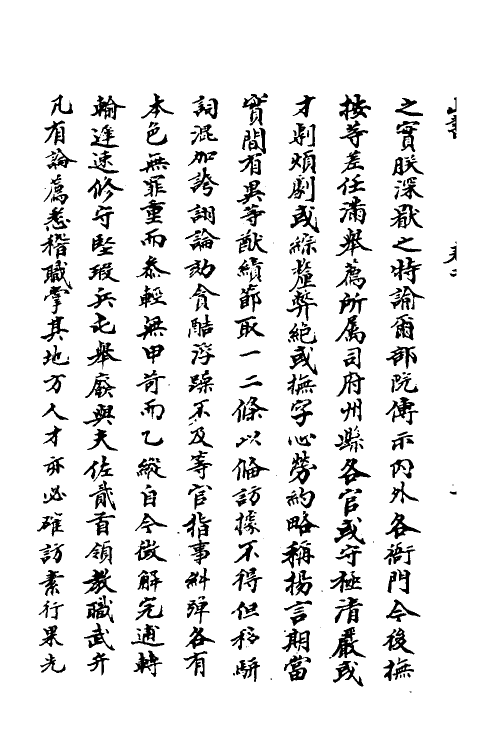 之實朕深厭之特諭爾部院傳示內外各衙門今後撫
按等差任滿舉薦所属司府州縣各官或守極清嚴或
才剸煩劇或綜釐弊絕或撫字心勞約略稱揚言期當
實間有異等猷績節取一二條以俻訪據不得但移駢
詞混加誇詡論劾貪酷浮躁不及等官指事糾彈各有
本色無罪重而叅輕無甲苛而乙縱自今徴解完逋轉
輸遲速修守堅瑕兵屯舉廢與夫佐貳首領教職武弁
凡有論薦悉稽職掌其地方人才亦必確訪素行果允